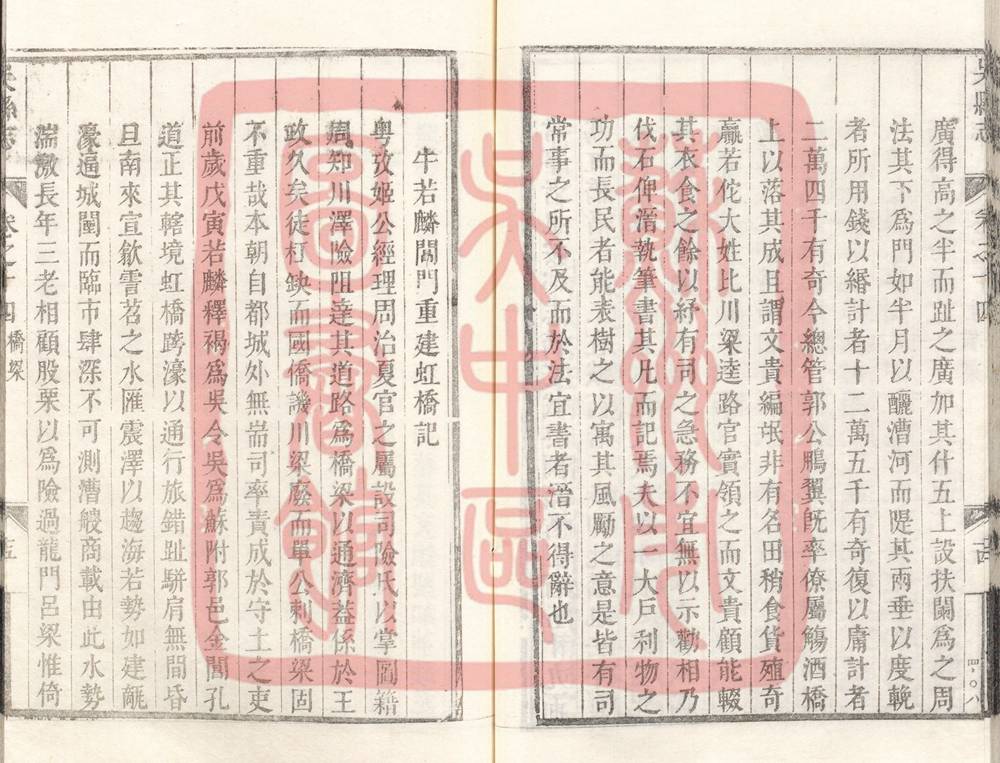 廣得高之半而趾之廣加其什五上設扶闌為之周
法其下爲門如半月以釃漕河而隄其兩垂以度輓
者所用錢以緡計者十二萬五千有奇復以庸計者
二萬四千有奇今總管郭公鵬翼旣率僚屬觴酒橋
上以落其成且謂文貴編氓非有名田稍食貨殖奇
贏若佗大姓比川梁逹路官實領之而文貴顧能輟
其衣食之餘以紓有司之急務不宜無以示勸相乃
伐石俾溍執筆書其凡而記焉夫以一大戸利物之
功而長民者能表樹之以寓其風勵之意是皆有司
常事之所不及而於法宜書者溍不得辭也
牛若麟閶門重建虹橋記
粤攷姬公經理周治夏官之屬設司險氏以掌圖籍
周知川澤險阻達其道路爲橋梁以通濟葢係於王
政久矣徒杠缺而國僑譏川梁廢而單公刺橋梁固
不重哉本朝自都城外無耑司率責成於守土之吏
前歲戊寅若麟釋褐爲吳令吳爲蘇附郭邑金閶孔
道正其轄境虹橋跨濠以通行旅錯趾駢肩無間昏
旦南來宣歙霅苕之水匯震澤以趨海若勢如建瓴
濠逼城闉而臨市肆深不可測漕艘商載由此水勢
湍激長年三老相顧股栗以爲險過龍門呂梁惟倚
吳縣志
卷之十四
橋梁
五
吳縣志
卷之十四
四
四·〇八
蘇州市吳中區圖書館